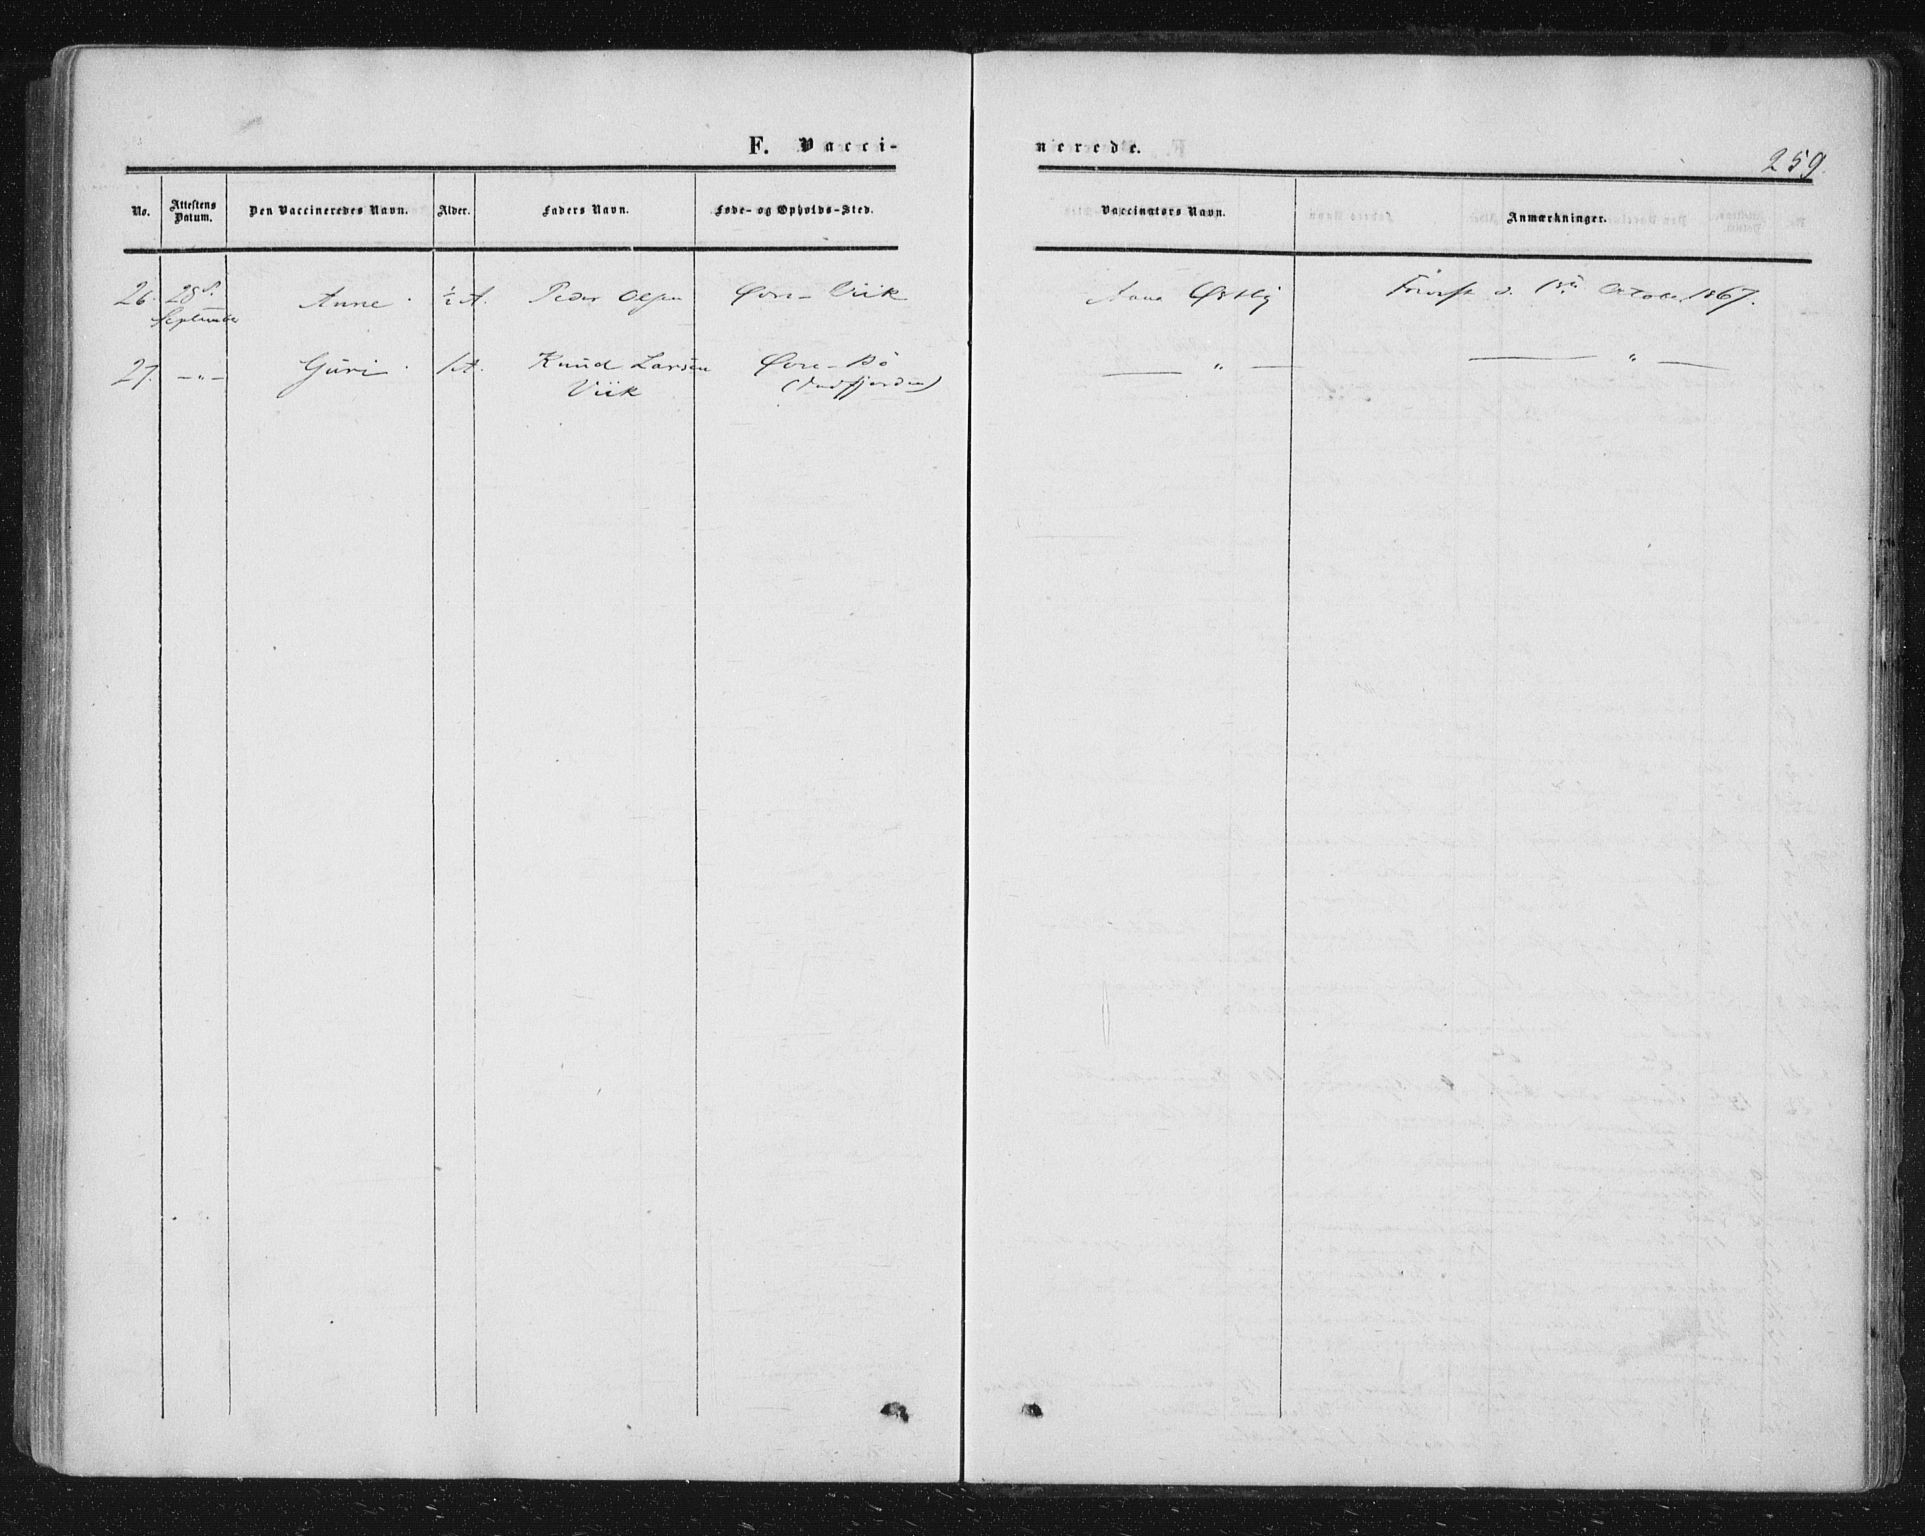 F. Vacci-
nerede.
259.
No.
Attestens Datum.
Den Vaccineredes Navn.
Alder.
Faders Navn.
Føde- og Opholds-Sted.
Vaccinators Navn.
Anmærkninger.
26. 28d. Anne. ½ A. Peder Olsen Øvre-Viik Anna Østby d. 1ste October 1867.
September
27. —„— Guri. 1 A. Knud Larsen Øvre-Bø — „ — — „ —
Viik (Indfjorden)